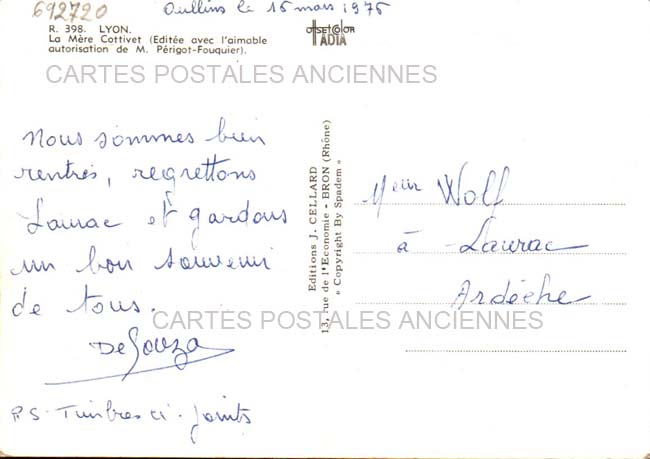 692720
Oullins le 16 mars 1976
R. 398. LYON.
La Mère Cottivet (Editée avec l'aimable
autorisation de M. Périgot-Fouquier).
OFFSETCOLOR
IADIA
CARTES POSTALES ANCIENNES
Nous sommes bien
rentrés, regrettons
Laurac et gardons
un bon souvenir
de tous.
De Souza
P.S. Timbres ci-joints
Editions J. CELLARD
13, rue de l'Economie - BRON (Rhône)
« Copyright By Spadem »
Meur Wolf
à Laurac
Ardèche
CARTES POSTALES ANCIENNES